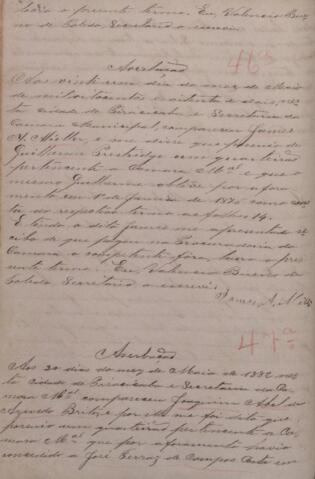 lavro o presente termo. Eu, Valencio Bue
no de Toledo, Secretario o escrevi.
46ª
Averbação
Aos vinte e um dia do mez de Maio
de mil oito centos e oitenta e dois, nes
ta cidade de Piracicaba e Secretaria da
Camara Municipal, compareceu James
A. Miller, e me disse que possuio de
Guilherme um quarteirão
pertencente a Camara Mªˡ e que o
mesmo Guilherme obteve por afora
mento em 1º de Janeiro de 1876 como cons
ta do respectivo termo as folhas 14.
E tendo o dito James me apresentado re
cibo de que pagou na Procuradoria da
Camara o competente fóro, lavro o pre
sente termo. Eu, Valencio Bueno de
Toledo, Secretario o escrevi.
James A. Miller
47ª
Averbação
Aos 20 dias do mez de Maio de 1882 nes
ta cidade de Piracicaba e Secretaria da Ca
mara Mªˡ compareceu Joaquim Abel de
Azevedo Brito, e por elle me foi dito que
possuio um quarteirão pertencente a Ca
mara Mªˡ que por aforamento havia
concedido a José Ferraz de Campos